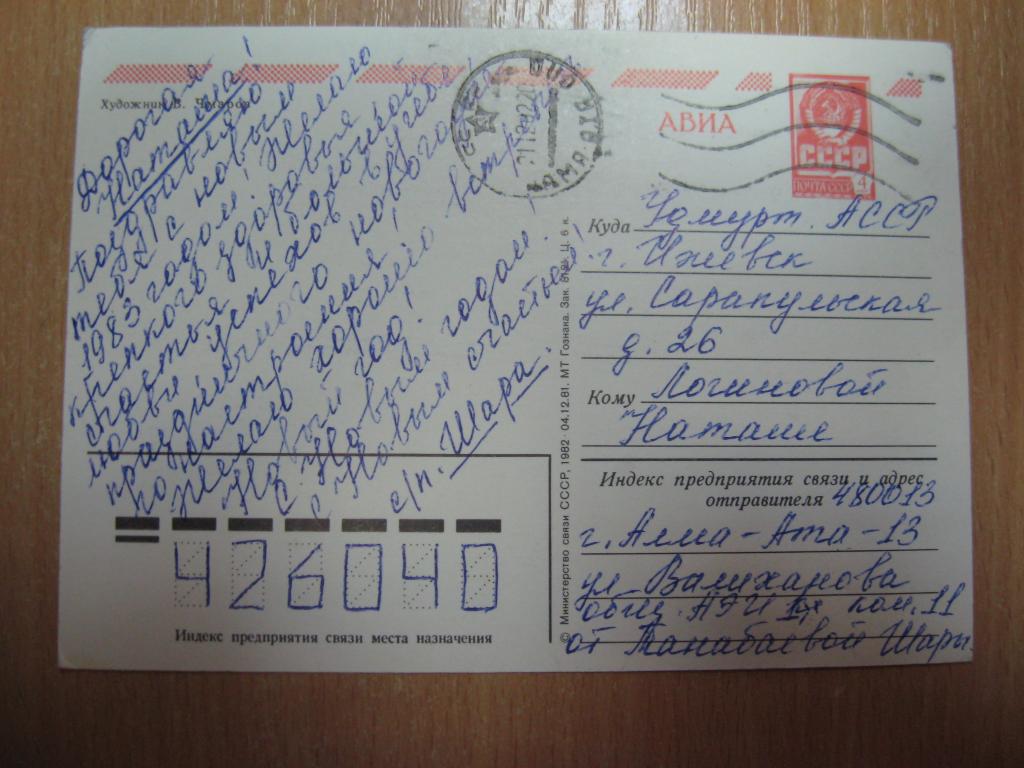 Художник В. Чмаров
Дорогая
Наташа!
Поздравляю
тебя с новым
1983 годом! Желаю
крепкого здоровья
счастья и большой
любви, успехов в учебе!
праздничного новогоднего
настроения!
желаю хорошо встретить
Новый год!
С Новым годом!
С Новым счастьем!
с/п. Шара.
АВИА
СССР
ПОЧТА СССР
4
Куда Удмурт. АССР
г. Ижевск
ул. Сарапульская
д. 26
Кому Логиновой
Наташе
Индекс предприятия связи и адрес
отправителя 480013
г. Алма-Ата-13
ул. Валиханова
общ. АЭИ ком. 11
от Танабаевой Шары.
426040
Индекс предприятия связи места назначения
© Министерство связи СССР, 1982 · 04.12.81. МТ Гознака. Зак. Ц. 6 к.